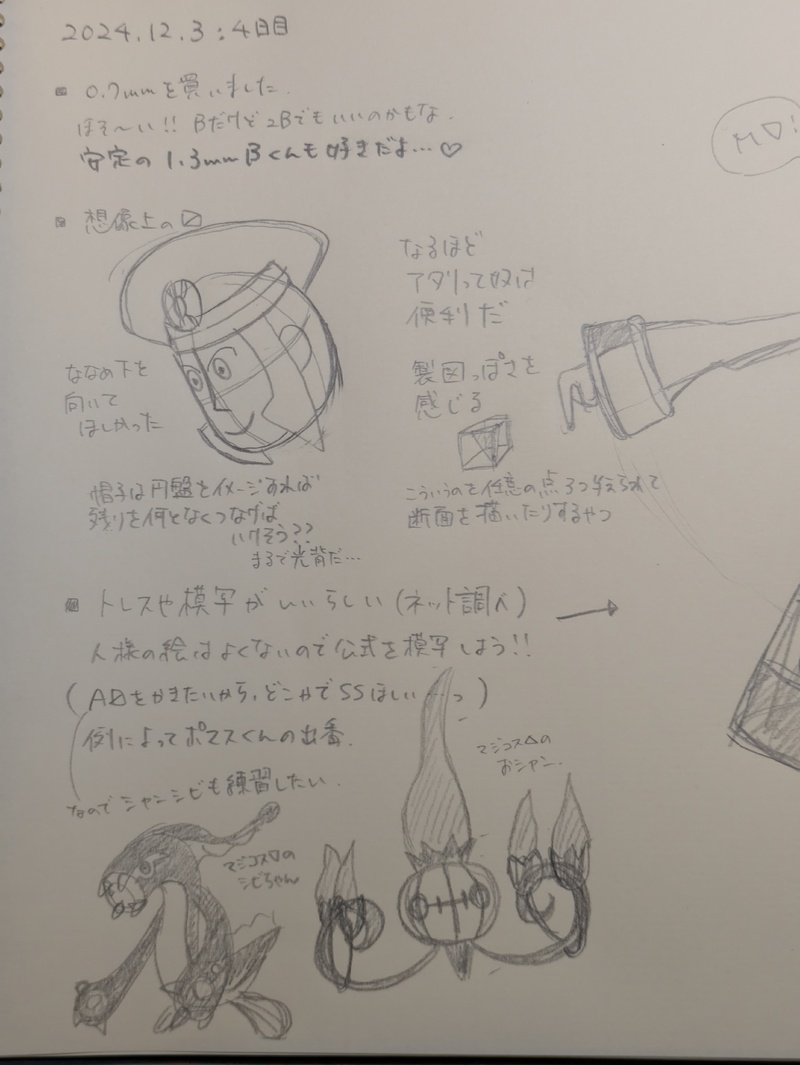 2024.12.3:4日目
0.7mmを買いました.
ほそ〜い!! Bだけど2Bでもいいのかもな.
安定の 1.3mm Bくんも好きだよ…♡
想像上の▽
なるほど
アタリって奴は
便利だ
ななめ下を
向いて
ほしかった
製図っぽさを
感じる
帽子は円盤をイメージすれば
残りを何となくつなげば
いけそう??
まるで光背だ…
こういうのを任意の点3つ与えられて
断面を描いたりするやつ
トレスや模写がいいらしい(ネット調べ) →
人様の絵はよくないので公式を模写しよう!!
例によってポマスくんの出番.
なのでシャンシビも練習したい.
マジコス△の
おシャン.
マジコス▽の
シビちゃん